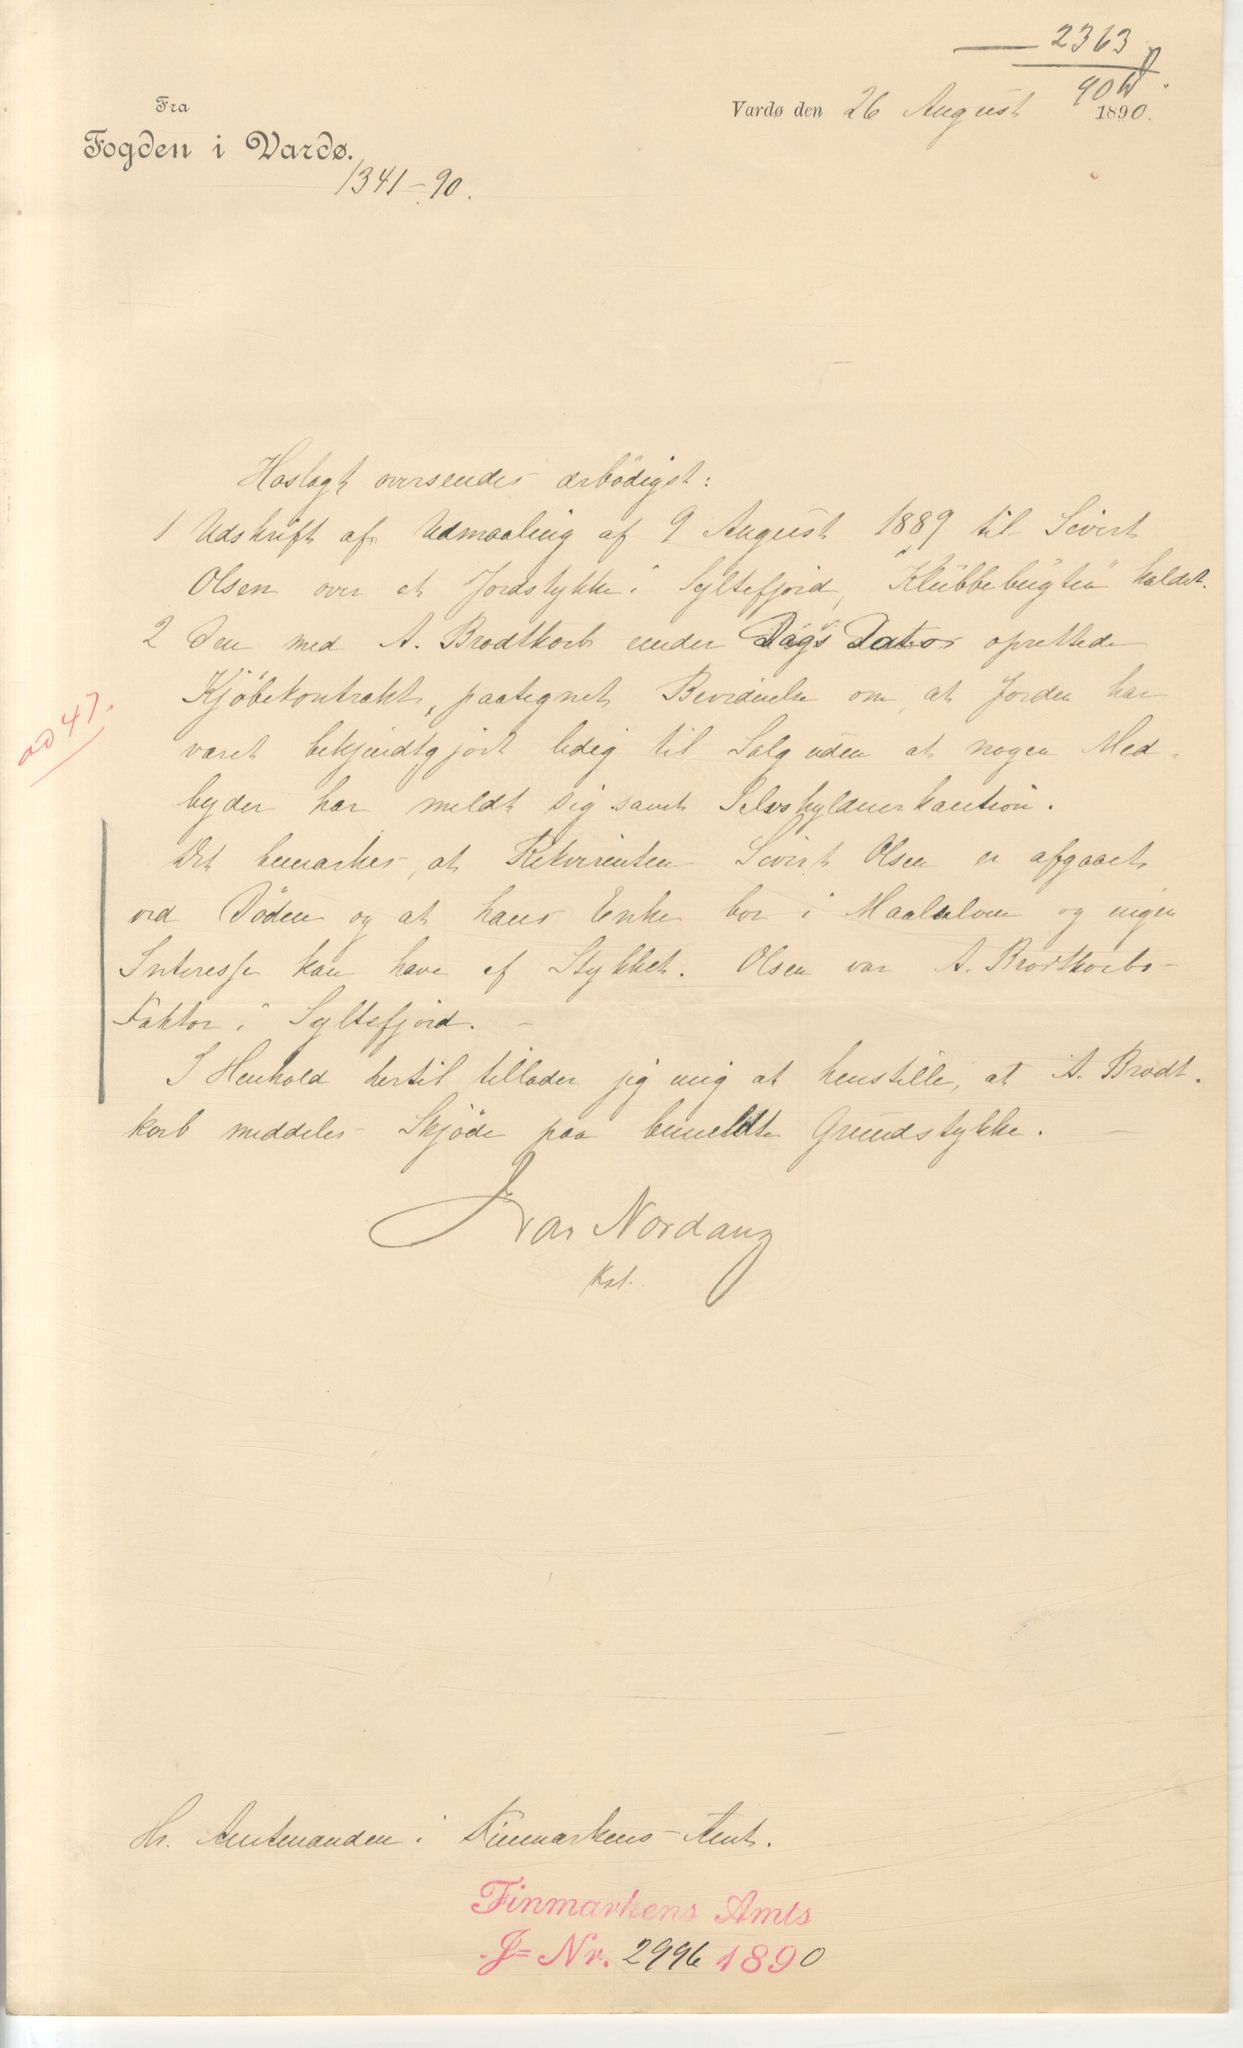 2363
90
Fra
Fogden i Vardø.
1341-90.
Vardø den 26 August 1890.
Hoslagt oversendes ærbödigst:
1 Udskrift af Udmaaling af 9 August 1889 til Sivert
Olsen over et Jordstykke i Syltefjord, "Klubbebugten" kaldet.
2 Den med A. Brodtkorb under Dags Dato oprettede
Kjöbekontrakt, paategnet Bevidnelse om, at Jorden har
været bekjendtgjort ledig til Salg uden at nogen Med-
byder har meldt sig samt Selvskyldnerkaution.
ad 47.
Det bemærkes, at Rekvirenten Sivert Olsen er afgaaet
ved Döden og at hans Enke bor i Maalselven og ingen
Interesse kan have af Stykket. Olsen var A. Brodtkorbs
Faktor i Syltefjord. -
I Henhold hertil tillader jeg mig at henstille, at A. Brodt-
korb meddeles Skjöde paa bemeldte Grundstykke. -
Ivar Nordang
Kst.
Hr. Amtmanden i Finmarkens Amt.
Finmarkens Amts
J= Nr. 2996 1890